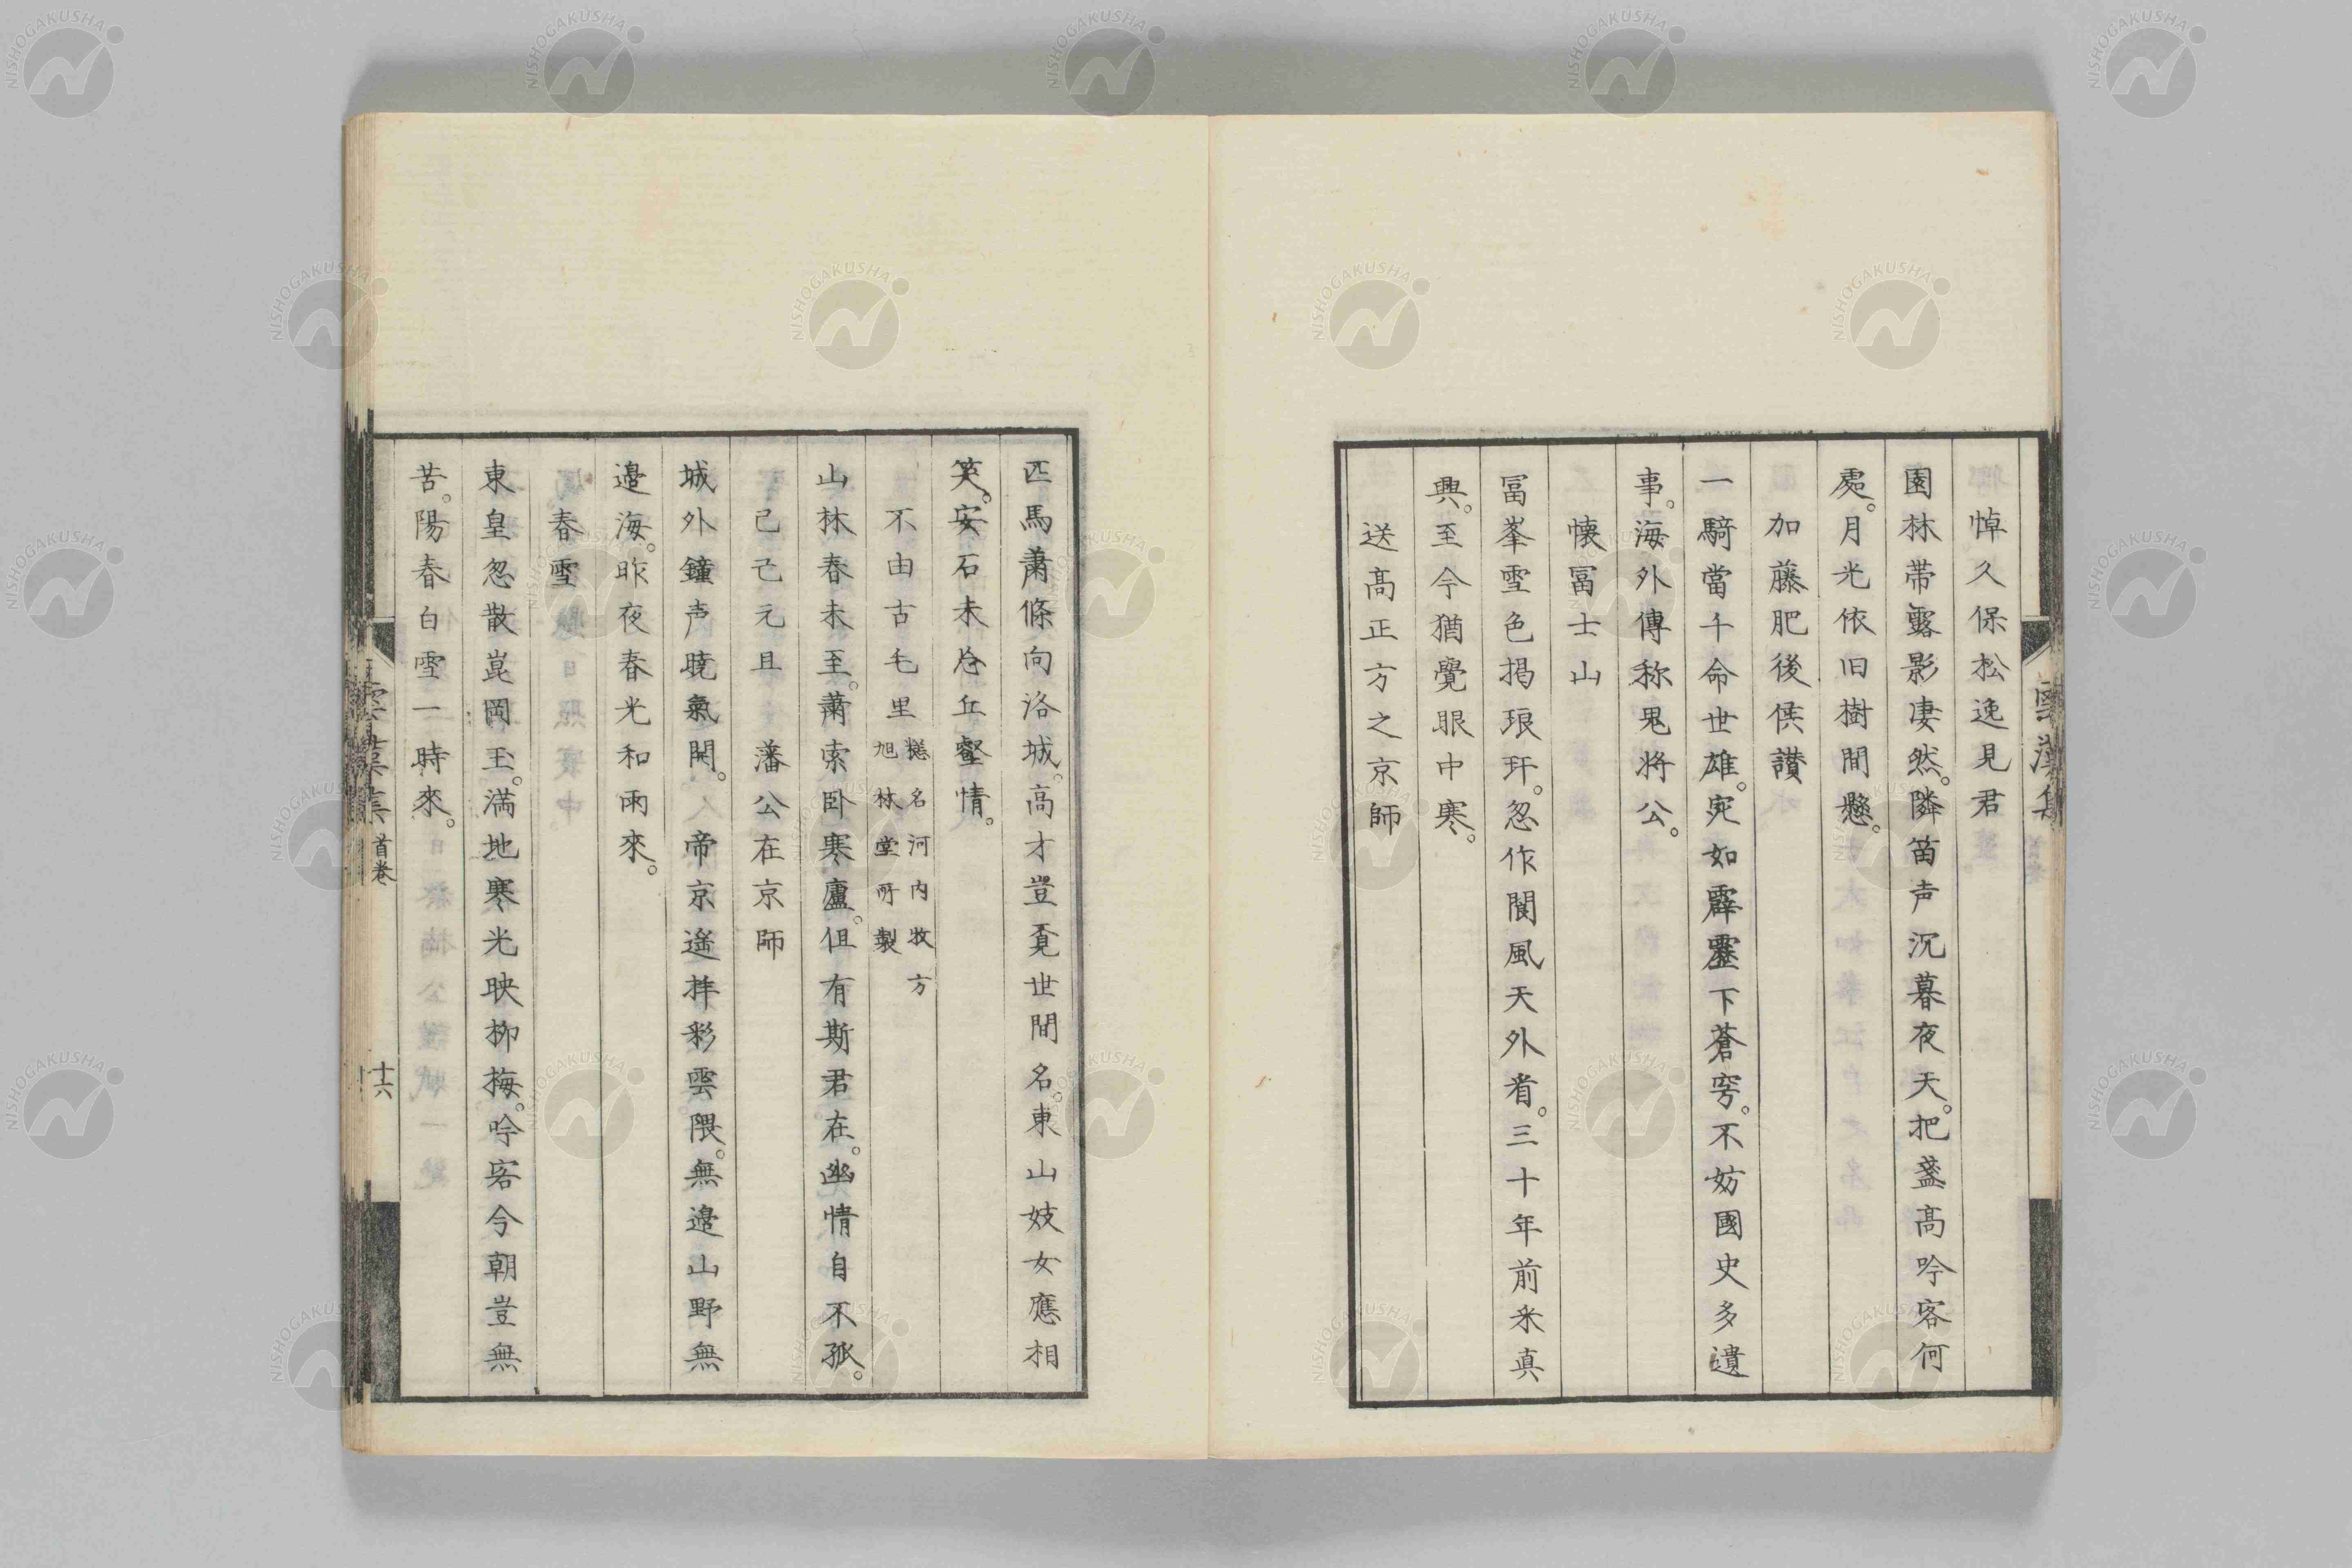 悼久保松逸見君
園林帯露影凄然。隣笛声沉暮夜天。把盞高吟客何
處。月光依旧樹間懸。
加藤肥後侯讃
一騎當千命世雄。宛如霹靂下蒼穹。不妨國史多遺
事。海外傳称鬼将公。
懐冨士山
冨峯雪色掲琅玕。忽作閬風天外看。三十年前来真
興。至今猶覺眼中寒。
送髙正方之京師
匹馬蕭條向洛城。高才豈覓世間名。東山妓女應相
笑。安石未冷丘壑情。
不由古毛里 糕名河内牧方
旭林堂所製
山林春未至。蕭索卧寒廬。但有斯君在。幽情自不孤。
己巳元旦 藩公在京師
城外鐘声暁氣開。帝京遥拝彩雲隈。無邉山野無
邉海。昨夜春光和雨來。
春雪
東皇忽散崑岡玉。満地寒光映柳梅。吟客今朝豈無
苦。陽春白雪一時來。
首巻
十六
NISHOGAKUSHA